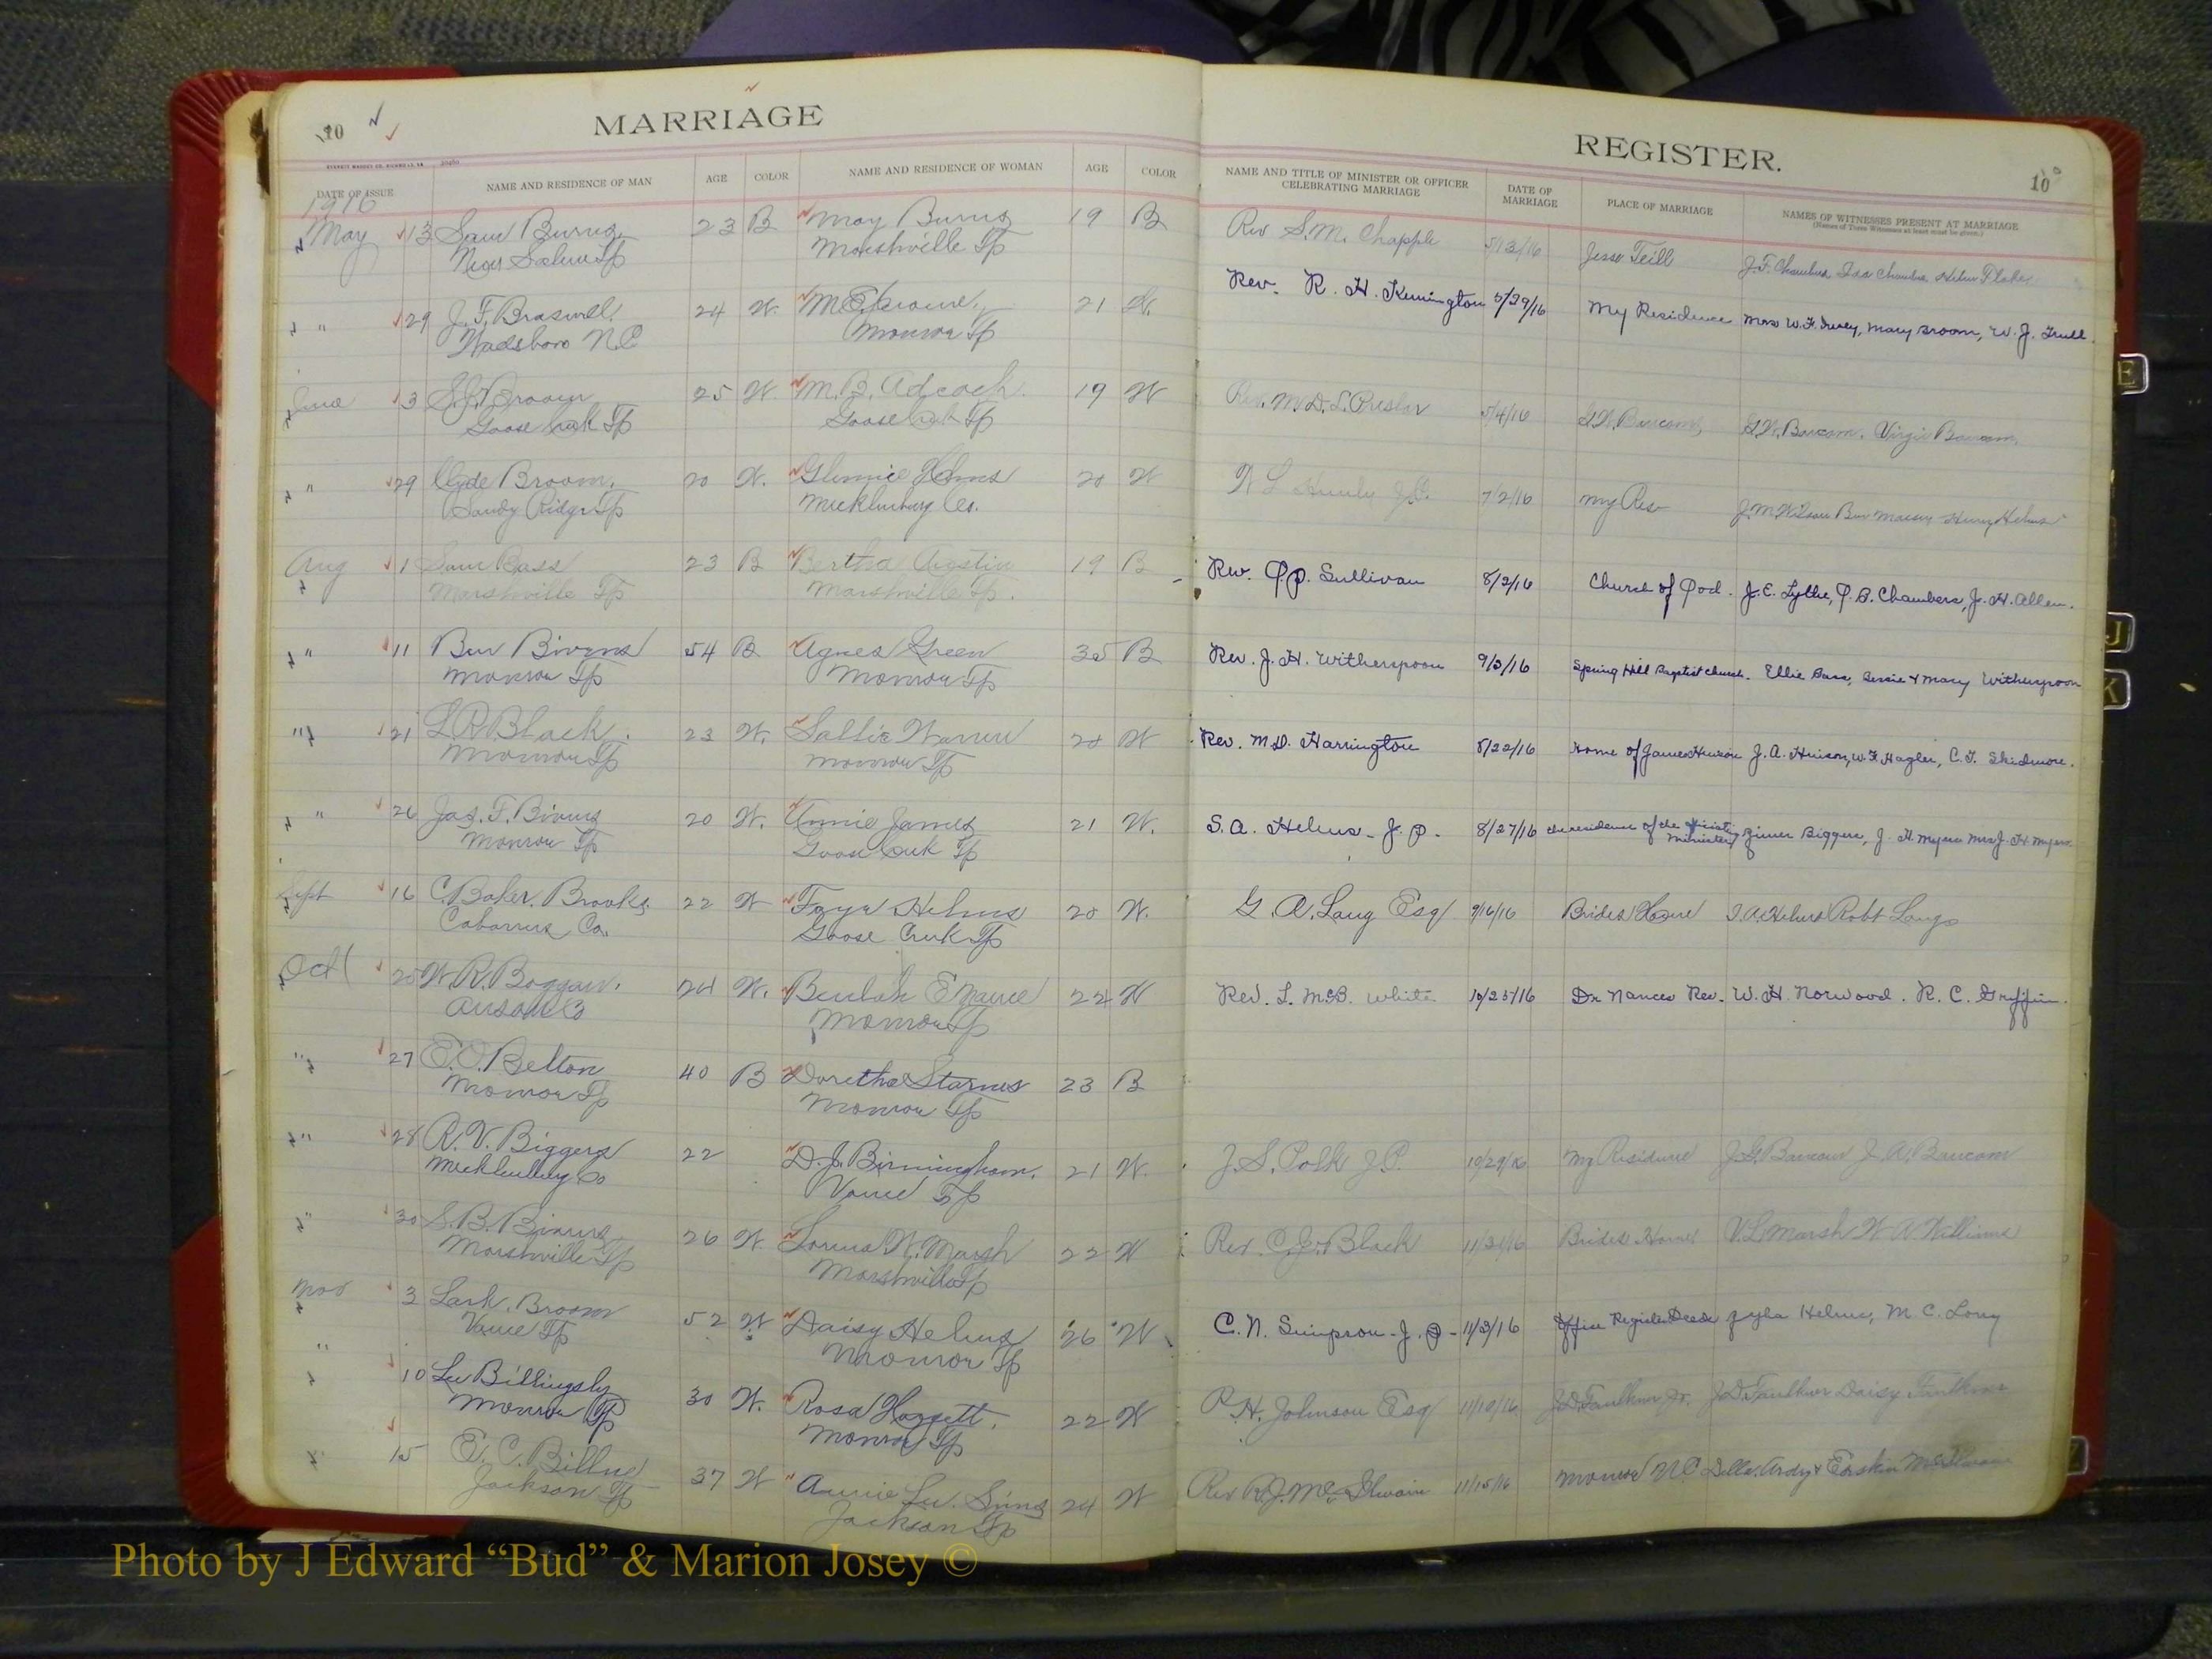 10
MARRIAGE
DATE OF ISSUE NAME AND RESIDENCE OF MAN AGE COLOR NAME AND RESIDENCE OF WOMAN AGE COLOR
1916
May 13 Sam Burns 23 B May Burns 19 B
New Salem Tp Marshville Tp
" 29 J. F. Braswell 24 W. 21 W.
Wadsboro N.C Monroe Tp
June 3 S.J. Broom 25 W. M. B. Adcock 19 W
Goose Creek Tp Goose Creek Tp
" 29 Clyde Broom. 20 W. Glennie Helms 20 W
Sandy Ridge Tp Mecklenburg Co.
Aug 1 Sam Bass 23 B Bertha Austin 19 B
Marshville Tp Marshville Tp.
" 11 Ben Bivens 54 B Agnes Green 35 B
Monroe Tp Monroe Tp
" 21 L R Black. 23 W. Sallie 20 W
Monroe Tp Monroe Tp
" 26 Jas. F. Bivens 20 W. Annie James 21 W.
Monroe Tp Goose Creek Tp
Sept 16 C. Baker Brooks. 22 W Faye Helms 20 W.
Cabarrus Co. Goose Creek Tp
Oct 25 W. R. Boggan. 24 W. Beulah E Nance 22 W
Anson Co Monroe Tp
" 27 E. O. Belton 40 B Doretha Starnes 23 B
Monroe Tp Monroe Tp
" 28 R. V. Biggers 22 D. J. Birmingham. 21 W.
Mecklenburg Co Vance Tp
" 30 S. B. Bivens 26 W. Lorena W. Marsh 22 W
Marshville Tp Marshville Tp
Nov 3 Lark. Broom 52 W Daisy Helms 26 W
Vance Tp Monroe Tp
" 10 Lee Billingsly 30 W. Rosa 22 W
Monroe Tp Monroe Tp
" 15 E. C. Billue 37 W Annie Lee. Sims 24 W
Jackson Tp Jackson Tp
REGISTER.
10
NAME AND TITLE OF MINISTER OR OFFICER CELEBRATING MARRIAGE DATE OF MARRIAGE PLACE OF MARRIAGE NAMES OF WITNESSES PRESENT AT MARRIAGE
(Names of Three Witnesses at least must be given.)
Rev S. M. Chapple 5/13/16 Jesse Teill J. F. Chambers Ida Chambers
Rev. R. H. Kennington 5/29/16 My Residence Mrs W. F. Mary Broom, W. J. Trull.
Rev. M. D. L. Preslar G. W. Baucoms G. W. Baucom. Virgie Baucom.
7/2/16 my Res Henry Helms
Rev. P.P. Sullivan 8/2/16 Church of God. J. E. Lyttle, P. B. Chambers, J. H. Allen.
Rev. J. H. Witherspoon 9/3/16 Spring Hill Baptist Church. Ellie Bass, Bessie & Mary Witherspoon
Rev. M. D. Harrington 8/22/16 Home of James Hinson J. A. Hinson, W. F. Hagler, C. T. Skidmore.
S. A. Helms - J. P. 8/27/16 the residence of the Minister Biggers, J. H. Myers Mrs J. H. Myers
G. A. Laug Esq 9/16/16 Brides Home Helms Robt
Rev. L. McB. White 10/25/16 Dr Nances Res. W. H. Norwood. R. C. Griffin.
J. S. Polk J. P. 10/29/16 My Residence J. G. Baucom J. A. Baucom
Rev. C. J. Black Brides Home V. L. Marsh W A Williams
C. N. Simpson - J. P - 11/3/16 Office Register Deeds Zyla Helms, M C. Long
R. H. Johnson Esq J. D. Faulkner Jr. J. D. Faulkner Daisy Faulkner
Rev R. J. McIlwain 11/15/16 Monroe N C Della, Ardy & Erskin McIlwain
E
J
K
Photo by J Edward “Bud” & Marion Josey ©